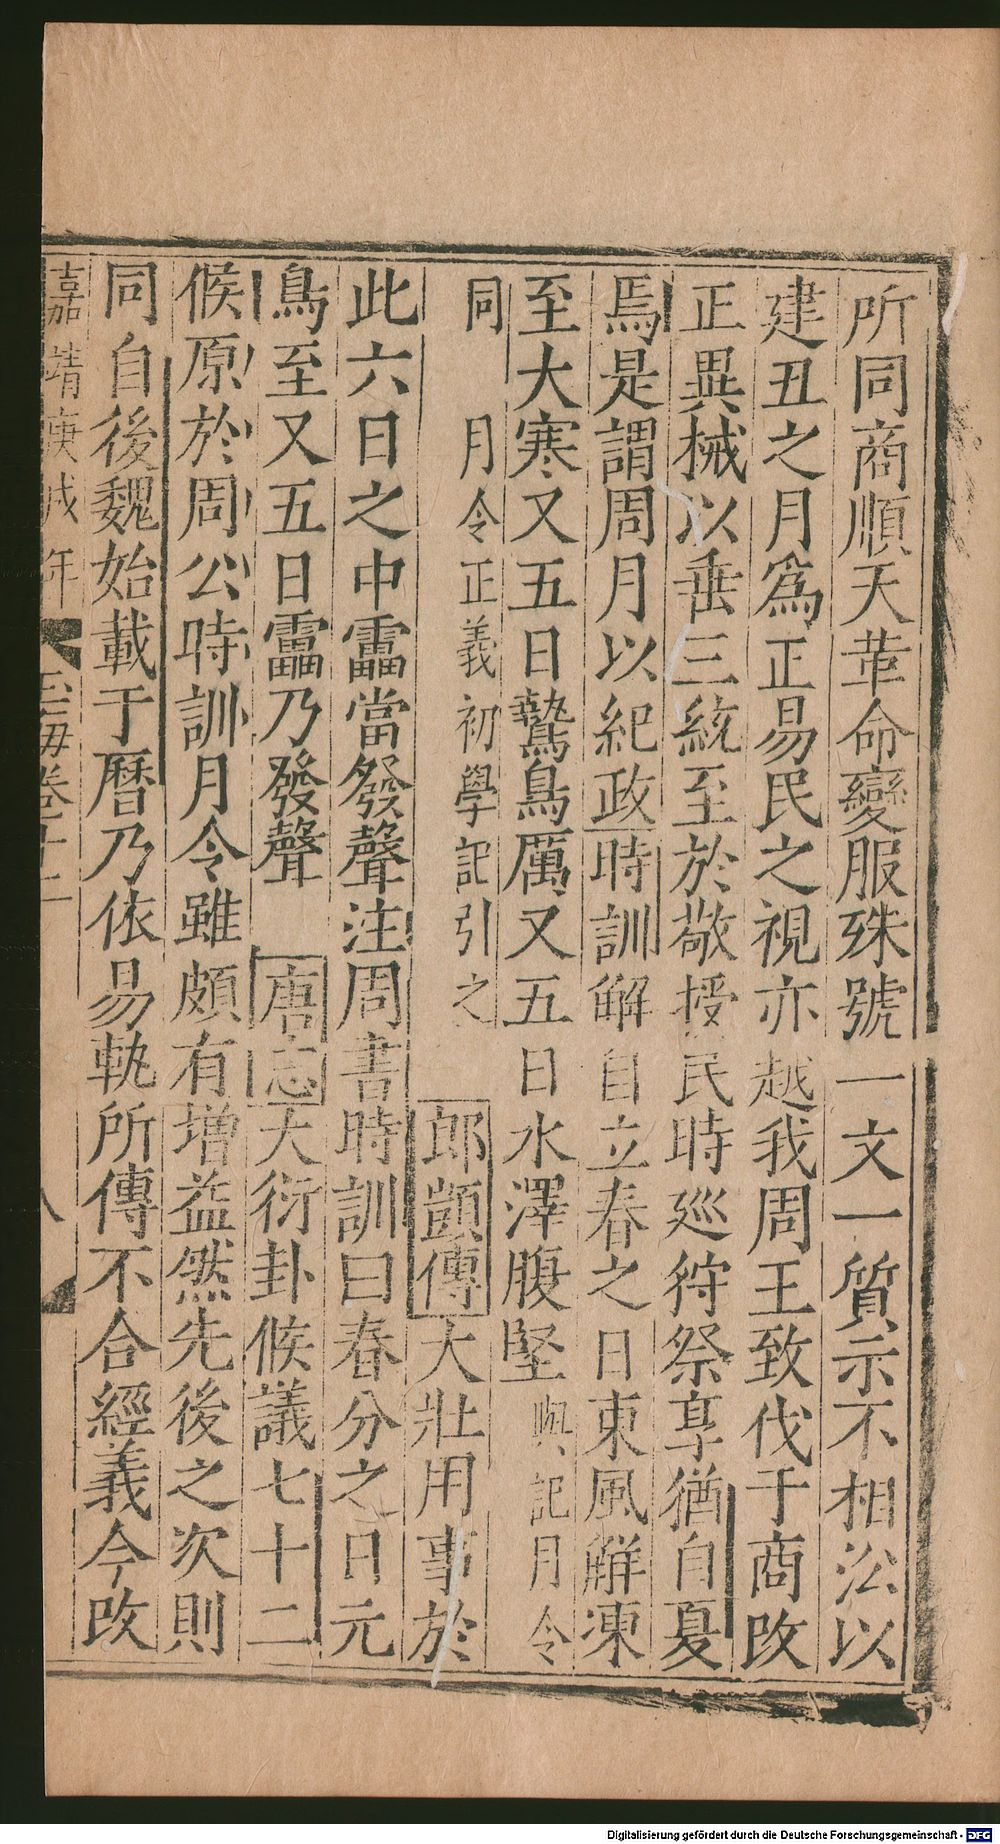 所同商順天革命變服殊號一文一質示不相㳂以
建丑之月爲正易民之視亦越我周王致伐于商改
正異械以垂三統至於敬授民時巡狩祭享猶自夏
焉是謂周月以紀政時訓解自立春之日東風解凍
至大寒又五日鷙鳥厲又五日水澤腹堅與記月令
同 月令正義初學記引之 郎顗傳大壯用事於
此六日之中靁當發聲注周書時訓曰春分之日元
鳥至又五日靁乃發聲 唐志大衍卦候議七十二
候原於周公時訓月令雖頗有增益然先後之次則
同自後魏始載于曆乃依易軌所傳不合經義今改
嘉靖庚戌年 玉海卷十二 八
Digitalisierung gefördert durch die Deutsche Forschungsgemeinschaft - DFG